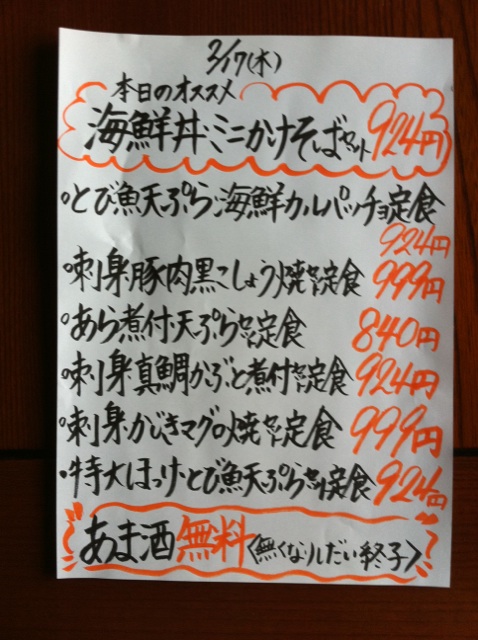 3/17(木)
本日のオススメ
海鮮丼、ミニかけそばセット 924円
・とび魚天ぷら海鮮カルパッチョ定食
924円
・刺身、豚肉黒こしょう焼セット定食 999円
・あら煮付、天ぷらセット定食 840円
・刺身、真鯛かぶと煮付セット定食 924円
・刺身、かじきマグロ焼セット定食 999円
・特大ほっけ・とび魚天ぷらセット定食 924円
あま酒無料〈無くなりしだい終了〉